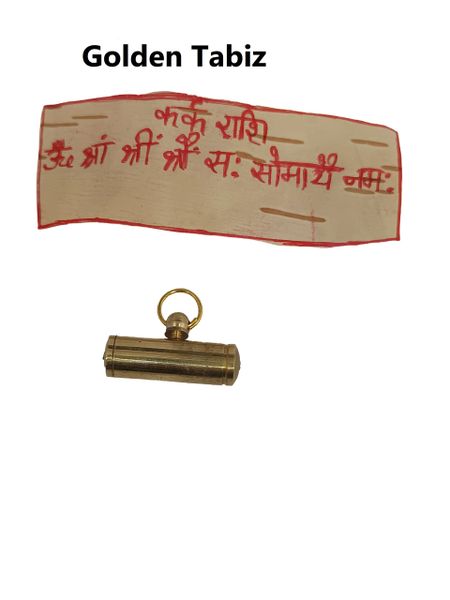 Golden Tabiz
कर्क राशि
ॐ श्रां श्रीं श्रौं सः सोमाय नमः